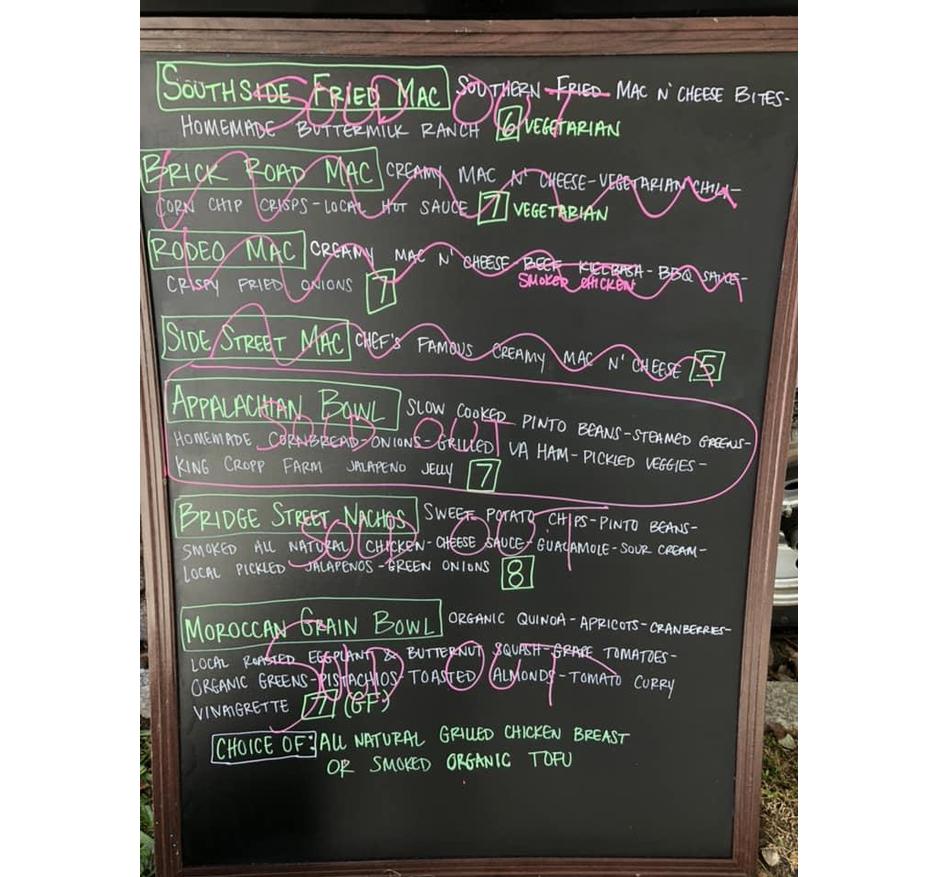 SOUTHSIDE FRIED MAC SOUTHERN FRIED MAC N' CHEESE BITES-
SOLD OUT
HOMEMADE BUTTERMILK RANCH 6 VEGETARIAN
BRICK ROAD MAC CREAMY MAC N' CHEESE-VEGETARIAN CHILI-
CORN CHIP CRISPS-LOCAL HOT SAUCE 7 VEGETARIAN
RODEO MAC CREAMY MAC N' CHEESE BEEF KIELBASA-BBQ SAUCE-
SMOKED CHICKEN
CRISPY FRIED ONIONS 7
SIDE STREET MAC CHEF'S FAMOUS CREAMY MAC N' CHEESE 5
APPALACHIAN BOWL SLOW COOKED PINTO BEANS-STEAMED GREENS-
SOLD OUT
HOMEMADE CORNBREAD-ONIONS-GRILLED VA HAM-PICKLED VEGGIES-
KING CROPP FARM JALAPENO JELLY 7
BRIDGE STREET NACHOS SWEET POTATO CHIPS-PINTO BEANS-
SOLD OUT
SMOKED ALL NATURAL CHICKEN-CHEESE SAUCE-GUACAMOLE-SOUR CREAM-
LOCAL PICKLED JALAPENOS-GREEN ONIONS 8
MOROCCAN GRAIN BOWL ORGANIC QUINOA-APRICOTS-CRANBERRIES-
LOCAL ROASTED EGGPLANT & BUTTERNUT SQUASH-GRAPE TOMATOES-
SOLD OUT
ORGANIC GREENS-PISTACHIOS-TOASTED ALMONDS-TOMATO CURRY
VINAIGRETTE 7 (GF)
CHOICE OF: ALL NATURAL GRILLED CHICKEN BREAST
OR SMOKED ORGANIC TOFU